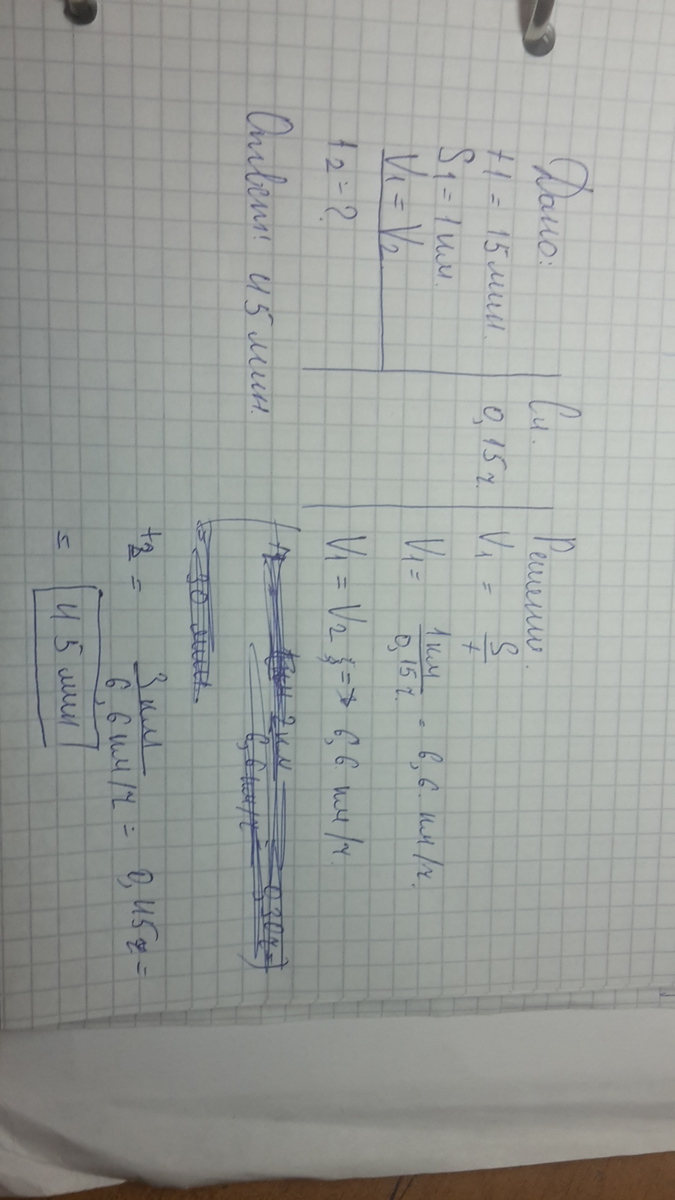 Дано:
t1 = 15 мин.
S1 = 1 км.
V1 = V2
t2 - ?
Си.
0,15 ч.
Решение.
V1 = S/t
V1 = 1км/0,15ч. = 6,6. км/ч.
V1 = V2 ; => 6,6. км/ч.
= 30 мин.
t2 = 3 км/6,6 км/ч = 0,45ч =
= 45 мин
Ответ: 45 мин.